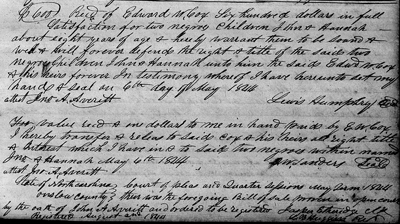 $600 Recd of Edward W. Cox Six hundred dollars in full
Satisfaction for two negroe children John & Hannah
about eight years of age & hereby warrant them to be sound &
well & will forever defend the right & title of the said two
negro children John & Hannah unto him the said Edwd W. Cox
& his heirs forever In testimony whereof I have hereunto set my
hand & Seal on 6th day of May 1844
attest Jno. A. Averitt Lewis Humphrey Seal
For value recd & in dollars to me in hand paid by E W Cox
I hereby transfer & release to said Cox & his heirs all right, title
& interest which I have in & to said two negroes within named
Jno & Hannah May 6th 1844
attest Jno. A. Averitt Sanders Seal
State of North Carolina Court of Pleas and Quarter Sessions May Term 1844
County Then was the foregoing Bill of Sale proven in open court
by the oath of John A. Averitt and ordered to be registered
Registered August 2nd 1844